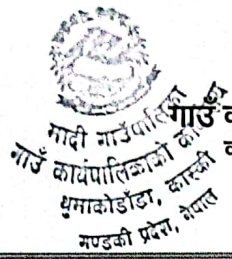 मादी गाउँपालिका
गाउँ कार्यपालिकाको
धुमाकोडाँडा, कास्की
गण्डकी प्रदेश, नेपाल
गाउँ